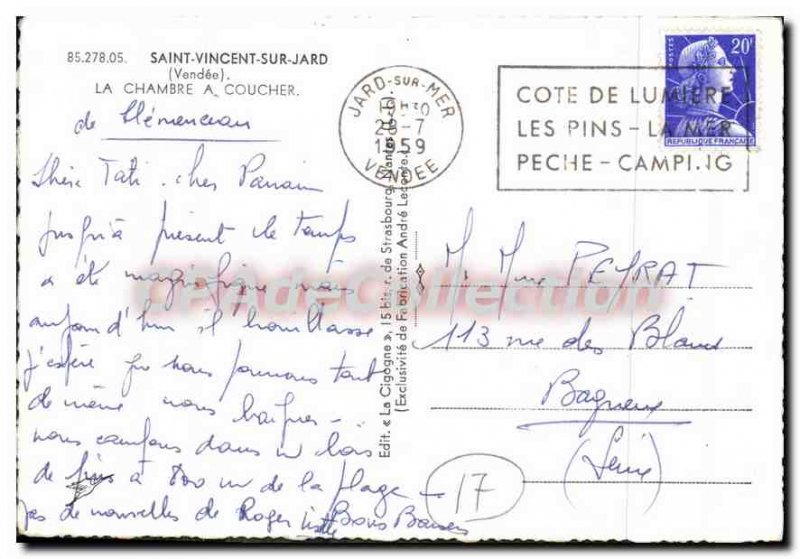 85.278.05. SAINT-VINCENT-SUR-JARD
(Vendée).
LA CHAMBRE A COUCHER.
de Clémenceau
Chère Tati, cher Parrain
jusqu'à présent le temps
a été magnifique mais
aujourd'hui il brouillasse
j'espère que nous pourrons tout
de même nous baigner -
nous campons dans un bois
de pins à 800 m de la plage -
pas de nouvelles de Roger Bons Baisers
Edit. « La Cigogne », 15 bis, r. de Strasbourg, Nantes
(Exclusivité de Fabrication André Leconte)
JARD-SUR-MER
1959
VENDEE
COTE DE LUMIERE
LES PINS - LA MER
PECHE - CAMPING
POSTES
20F
REPUBLIQUE FRANÇAISE
M. Mme PEYRAT
113 rue des Blains
Bagneux
(Seine)
17
CPAdeCollection